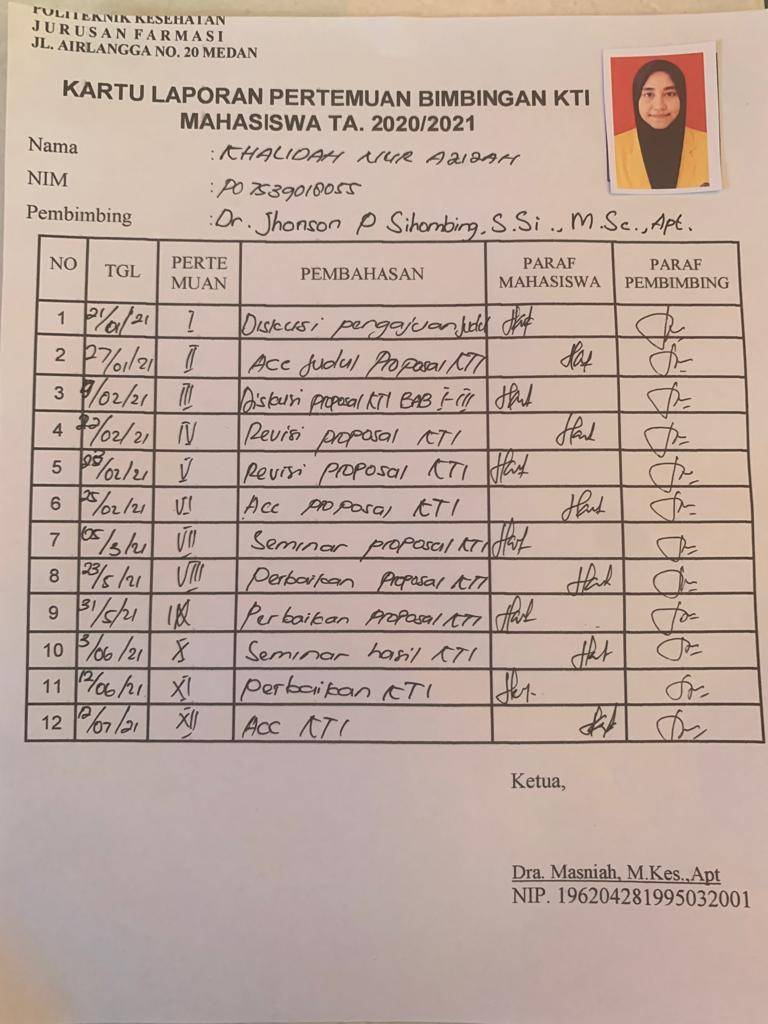 POLITEKNIK KESEHATAN
JURUSAN FARMASI
JL. AIRLANGGA NO. 20 MEDAN
KARTU LAPORAN PERTEMUAN BIMBINGAN KTI
MAHASISWA TA. 2020/2021
Nama : KHALIDAH NUR AZIZAH
NIM : P07539018055
Pembimbing : Dr. Jhonson P Sihombing, S.Si., M.Sc., Apt.
NO TGL PERTE MUAN PEMBAHASAN PARAF MAHASISWA PARAF PEMBIMBING
1 21/01/21 I Diskusi pengajuan judul
2 27/01/21 II Acc Judul Proposal KTI
3 /02/21 III Diskusi proposal KTI BAB I-III
4 /02/21 IV Revisi proposal KTI
5 /02/21 V Revisi proposal KTI
6 25/02/21 VI Acc proposal KTI
7 05/3/21 VII Seminar proposal KTI
8 23/5/21 VIII Perbaikan Proposal KTI
9 31/5/21 IX Perbaikan Proposal KTI
10 3/06/21 X Seminar hasil KTI
11 12/06/21 XI Perbaikan KTI
12 12/07/21 XII Acc KTI
Ketua,
Dra. Masniah, M.Kes.,Apt
NIP. 196204281995032001